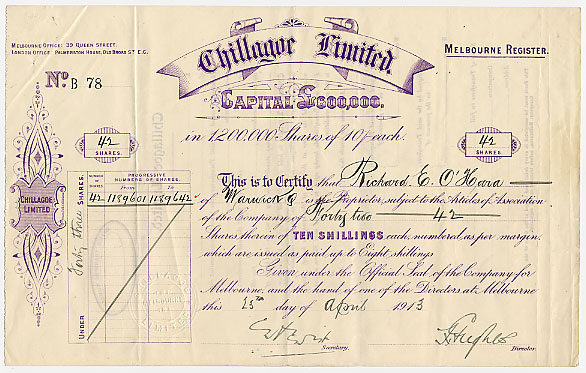 MELBOURNE OFFICE: 39 QUEEN STREET.
LONDON OFFICE: PALMERSTON HOUSE, OLD BROAD ST E.C.
Chillagoe Limited.
MELBOURNE REGISTER.
No. B 78
CAPITAL £600,000.
in 1,200,000 Shares of 10/- each.
42
SHARES.
42
SHARES.
NUMBER OF SHARES
PROGRESSIVE NUMBERS OF SHARES.
from to
42 1189601 1189642
SHARES.
Forty three
UNDER
CHILLAGOE LIMITED
This is to Certify that Richard E. O'Hara
of Warwick Q is the Proprietor, subject to the Articles of Association
of the Company of Forty two 42
Shares therein of TEN SHILLINGS each, numbered as per margin,
which are issued as paid up to Eight shillings
Given under the Official Seal of the Company for
Melbourne, and the hand of one of the Directors at Melbourne
this 15th day of April 1913
Secretary.
Director.